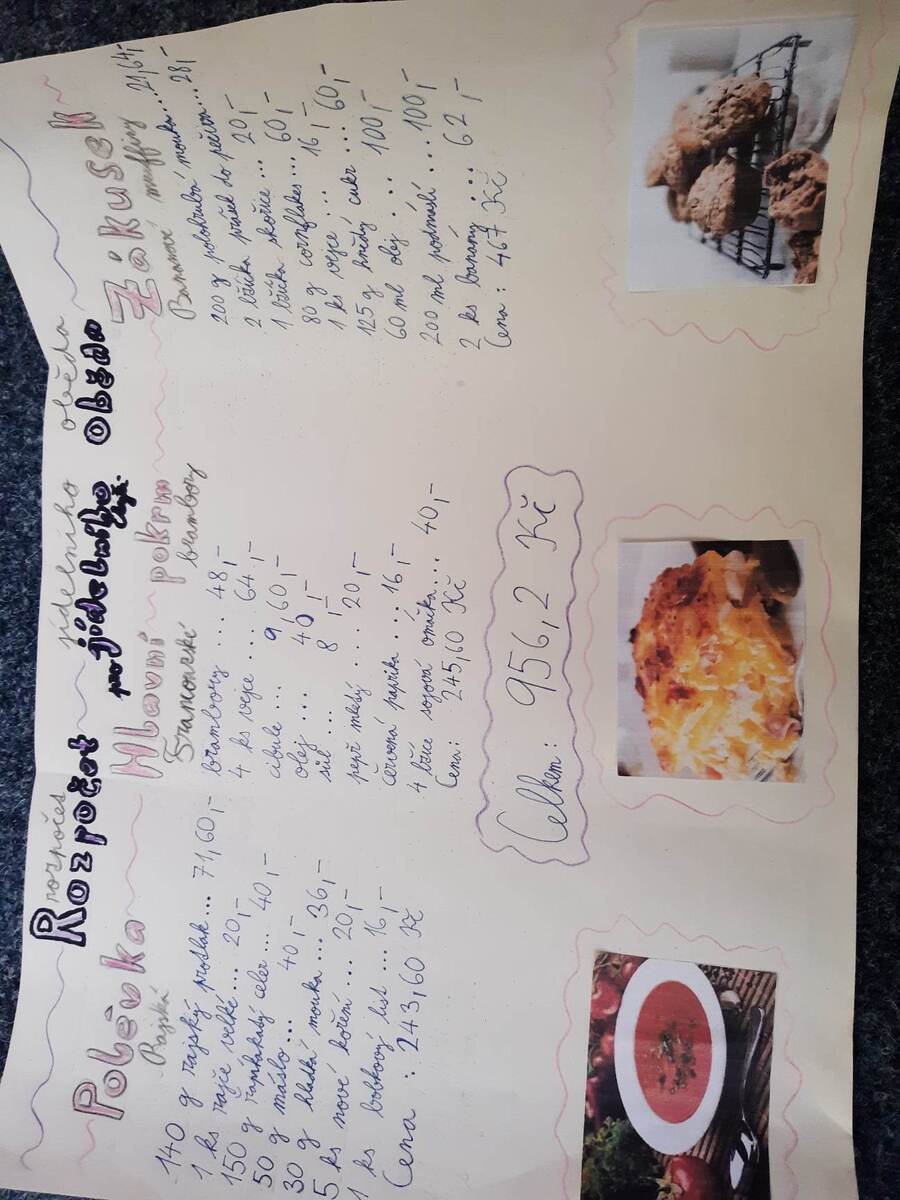 rozpočes jídelního oběda
Rozpočet pro jídelního oběda
Polévka
Rajská
140 g rajský protlak... 71,60,-
1 ks rajče velké... 20,-
150 g řapíkatý celer... 40,-
50 g máslo... 40,-
30 g hladká mouka... 36,-
5 ks nové koření... 20,-
1 ks bobkový list... 16,-
Cena: 243,60 Kč
Hlavní pokrm
Francouzské brambory
brambory .... 48,-
4 ks vejce .... 64,-
cibule ... 9,60,-
olej ... 40,-
sůl ... 8,-
pepř mletý ... 20,-
červená paprika ... 16,-
4 lžíce sojová omáčka.... 40,-
Cena: 245,60 Kč
Zákusek
Banánové muffiny
200 g polohrubá mouka...21,64,-
2 lžička prášek do pečiva...28,-
1 lžička skořice ... 20,-
80 g cornflakes... 60,-
1 ks vejce .... 16,-
125 g hnědý cukr ... 60,-
60 ml olej ... 100,-
200 ml podmáslí ... 100,-
2 ks banány ... 62,-
Cena: 467 Kč
Celkem: 956,2 Kč